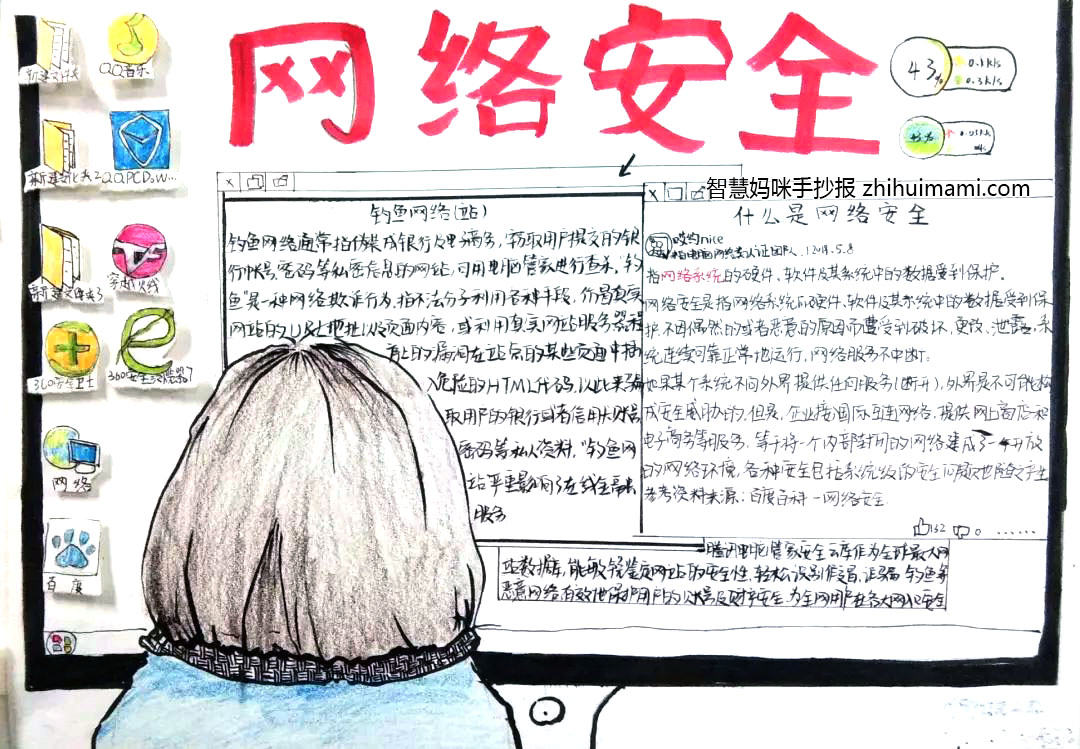 网络安全
新建文件夹
QQ音乐
新建文件夹2
QQPCDow...
新建文件夹3
穿越火线
360安全卫士
网络
百度
43%
0.1k/s
0.3k/s
智慧妈咪手抄报 zhihuimami.com
钓鱼网络(站)
钓鱼网络通常指伪装成银行及电子商务，窃取用户提交的银
行帐号、密码等私密信息的网站，可用电脑管家进行查杀。"钓
鱼"是一种网络欺诈行为，指不法分子利用各种手段，仿冒真实
网站的URL地址以及页面内容，或利用真实网站服务器程
序上的漏洞在站点的某些页面中插
入危险的HTML代码，以此来骗
取用户的银行或者信用卡账号
密码等私人资料，"钓鱼网
站严重影响了在线金融
服务
什么是网络安全
哎约nice
电脑网络 认证团队
指网络系统的硬件、软件及其系统中的数据受到保护。
网络安全是指网络系统的硬件、软件及其系统中的数据受到保
护，不因偶然的或者恶意的原因而遭受到破坏、更改、泄露，系
统连续可靠正常地运行，网络服务不中断。
如果某个系统不向外界提供任何服务(断开)，外界是不可能构
成安全威胁的。但是，企业接国际互连网络，提供网上商店和
电子商务等服务，等于将一个内部封闭的网络建成了一个开放
的网络环境，各种安全包括系统级的安全问题也随之产生
参考资料来源：百度百科—网络安全
132
0
......
腾讯电脑管家安全云库作为全球最大网
址数据库，能够鉴定网站的安全性，轻松识别
恶意网络有效地保护用户的账号及财产安全，为全网用户